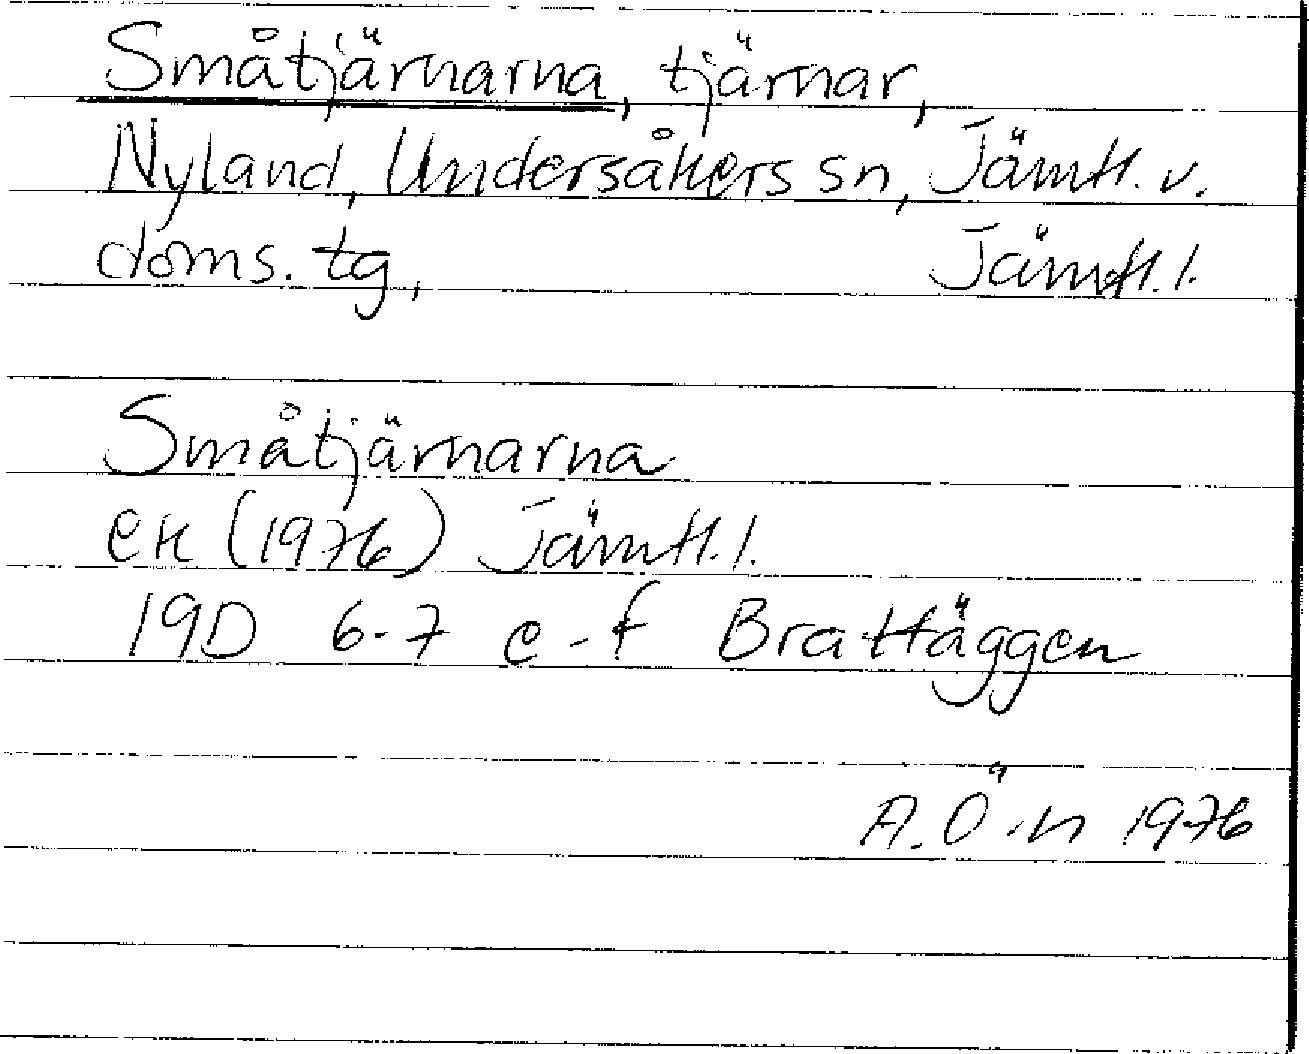 Småtjärnarna, tjärnar,
Nyland, Undersåkers sn, Jämtl. v.
doms. tg, Jämtl. l.
Småtjärnarna
ek (1976) Jämtl. l.
19D 6-7 e-f Brattäggen
A. Ö-n 1976